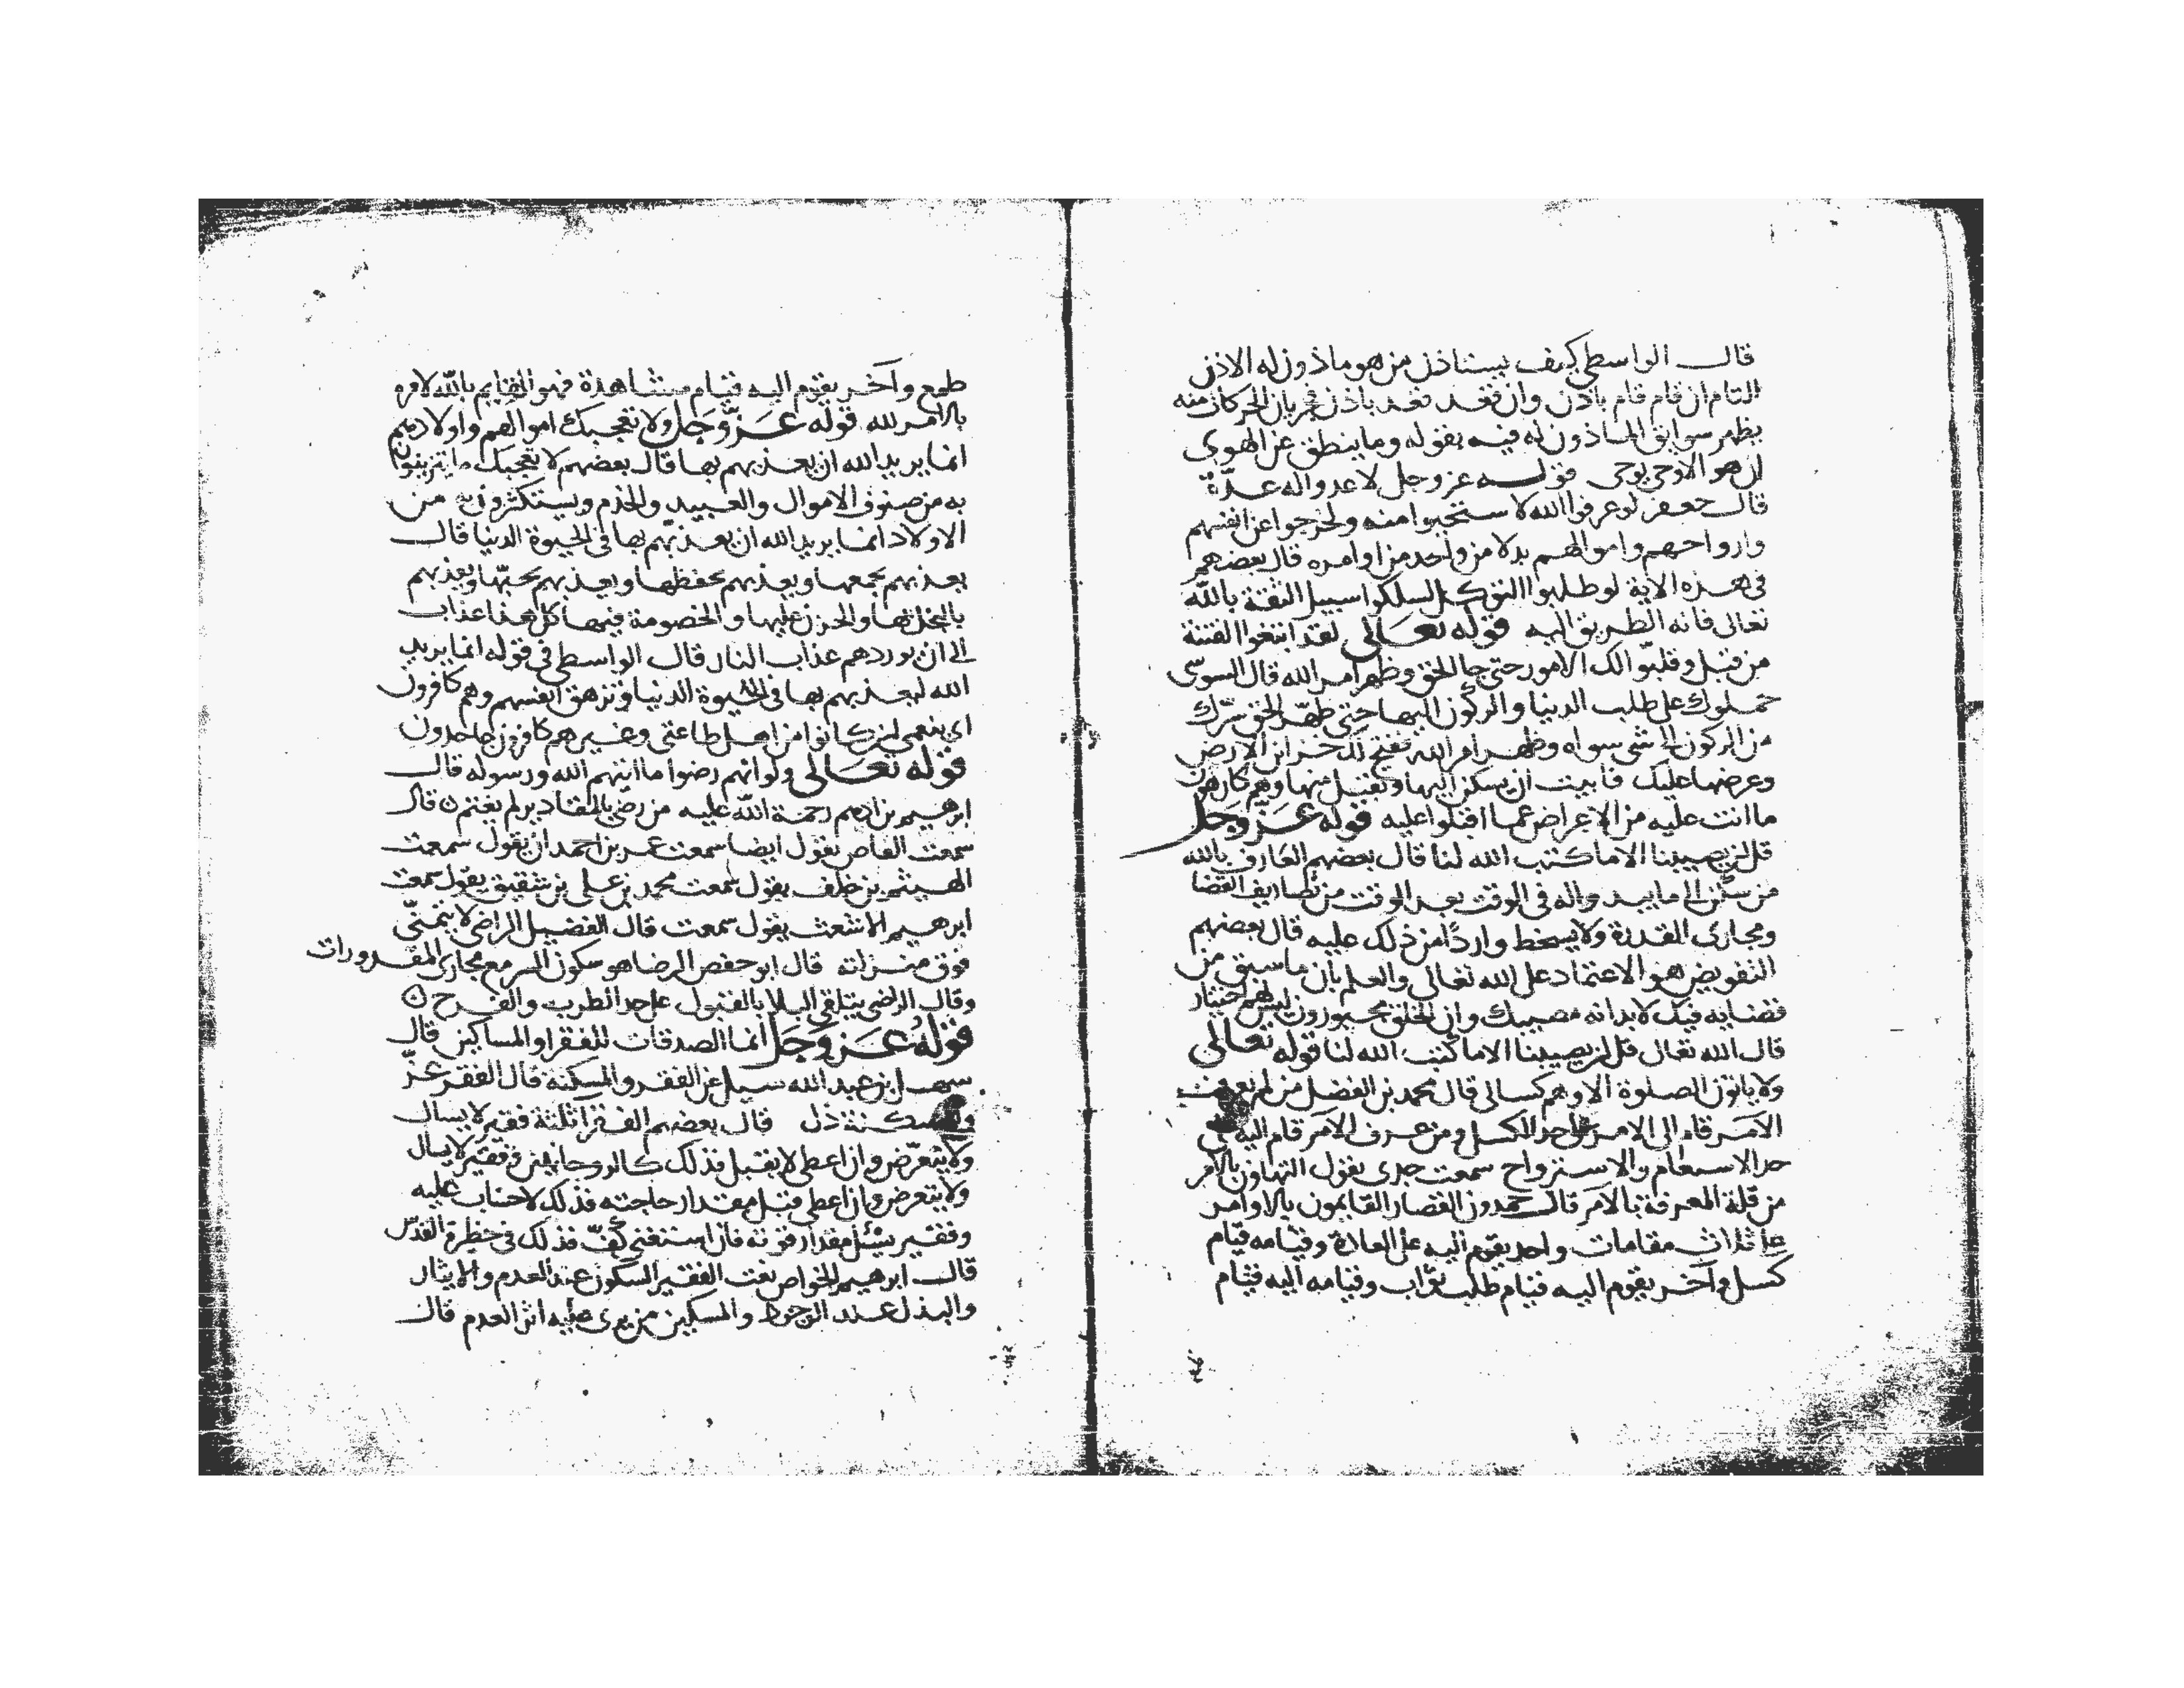 قال الواسطي كيف يستاذن من هو ماذون له الاذن
التام ان قام قام باذن وان قعد قعد باذن فجريان الحركات منه
يظهر سوابق الماذون له فيه بقوله وما ينطق عن الهوى
ان هو الا وحي يوحى قوله عز وجل لاعدوا له عدّة
قال جعفر لو عرفوا الله لاستحيوا منه ولخرجوا عن انفسهم
وارواحهم واموالهم بدلا من واحد من اوامره قال بعضهم
في هذه الاية لو طلبوا التوكل لسلكوا سبيل الثقة بالله
تعالى فانه الطريق اليه قوله تعالى لقد ابتغوا الفتنة
من قبل وقلبّوا لك الامور حتى جا الحق وظهر امر الله قال السوسى
حملوك على طلب الدنيا والركون اليها حتى طهّر الحق سرّك
من الركون الى شى سواه وظهر امر الله تفتح لك خزاين الارض
وعرضها عليك فابيت ان تسكن اليها وتقبل منها وهم كارهون
ما انت عليه من الاعراض عما اقبلوا عليه قوله عز وجل
قل لن يصيبنا الا ما كتب الله لنا قال بعضهم العارف بالله
من سكن الى ما يبدو له في الوقت بعد الوقت من تصاريف القضا
ومجارى القدرة ولا يسخط واردا من ذلك عليه قال بعضهم
التفويض هو الاعتماد على الله تعالى والعلم بان ما سبق من
قضايه فيك لا بد انه مصيبك وان الخلق مجبورون ليس لهم اختيار
قال الله تعالى قل لن يصيبنا الا ما كتب الله لنا قوله تعالى
ولا ياتون الصلوة الا وهم كسالى قال محمد بن الفضل من لم يعرف
الامر قام الى الامر على حد الكسل ومن عرف الامر قام اليه على
حد الاستغنام والاسترواح سمعت جدى يقول التهاون بالامر
من قلة المعرفة بالآمر قال حمدون القصار القايمون بالاوامر
على ثلاث مقامات واحد يقوم اليه على العادة وقيامه قيام
كسل وآخر يقوم اليه قيام طلب ثواب وقيامه اليه قيام
طمع وآخر يقوم اليه قيام مشاهدة فهو القايم بالله لامره
بالامر لله قوله عز وجل ولا تعجبك اموالهم واولادهم
انما يريد الله ان يعذبهم بها قال بعضهم لا تعجبك ما يتزينون
به من صنوف الاموال والعبيد والخدم ويستكثرون به من
الاولاد انما يريد الله ان يعذبهم بها في الحيوة الدنيا قال
يعذبهم بجمعها ويعذبهم بحفظها ويعذبهم بحبّها ويعذبهم
بالبخل بها والحزن عليها والخصومة فيها كل هذا عذاب
الى ان يوردهم عذاب النار قال الواسطي في قوله انما يريد
الله ليعذبهم بها في الحيوة الدنيا وتزهق انفسهم وهم كافرون
اى بنعمي لمن كانوا من اهل طاعتى وغيرهم كافرون جاحدون
قوله تعالى ولو انهم رضوا ما اتيهم الله ورسوله قال
ابرهيم بن ادهم رحمة الله عليه من رضى بالمقادير لم يغتم قال
سمعت القاص يقول ايضا سمعت عمر بن احمد ان يقول سمعت
الهيثم بن خلف يقول سمعت محمد بن على بن شقيق يقول سمعت
ابرهيم الاشعث يقول سمعت قال الفضيل الراضى لا يتمنّى
فوق منزلته قال ابو حفص الرضا هو سكون السر مع مجارى المقدورات
وقال الراضى يتلقى البلا بالقبول على حد الطرب والفرح
قوله عز وجل انما الصدقات للفقرا والمساكين قال
سهل بن عبد الله سيل عن الفقر والمسكنة قال الفقر عزّ
والمسكنة ذل قال بعضهم الفقرا ثلثة فقير لا يسال
ولا يتعرّض وان اعطى لا يقبل فذلك كالروحانيين وفقير لا يسال
ولا يتعرض وان اعطى قبل مقدار حاجته فذلك لا حساب عليه
وفقير يسئل مقدار قوته فان استغنى كفّ فذلك في حظيرة القدس
قال ابرهيم الخواص نعت الفقير السكون عند العدم والايثار
والبذل عند الوجود والمسكين من يرى عليه اثر العدم قال